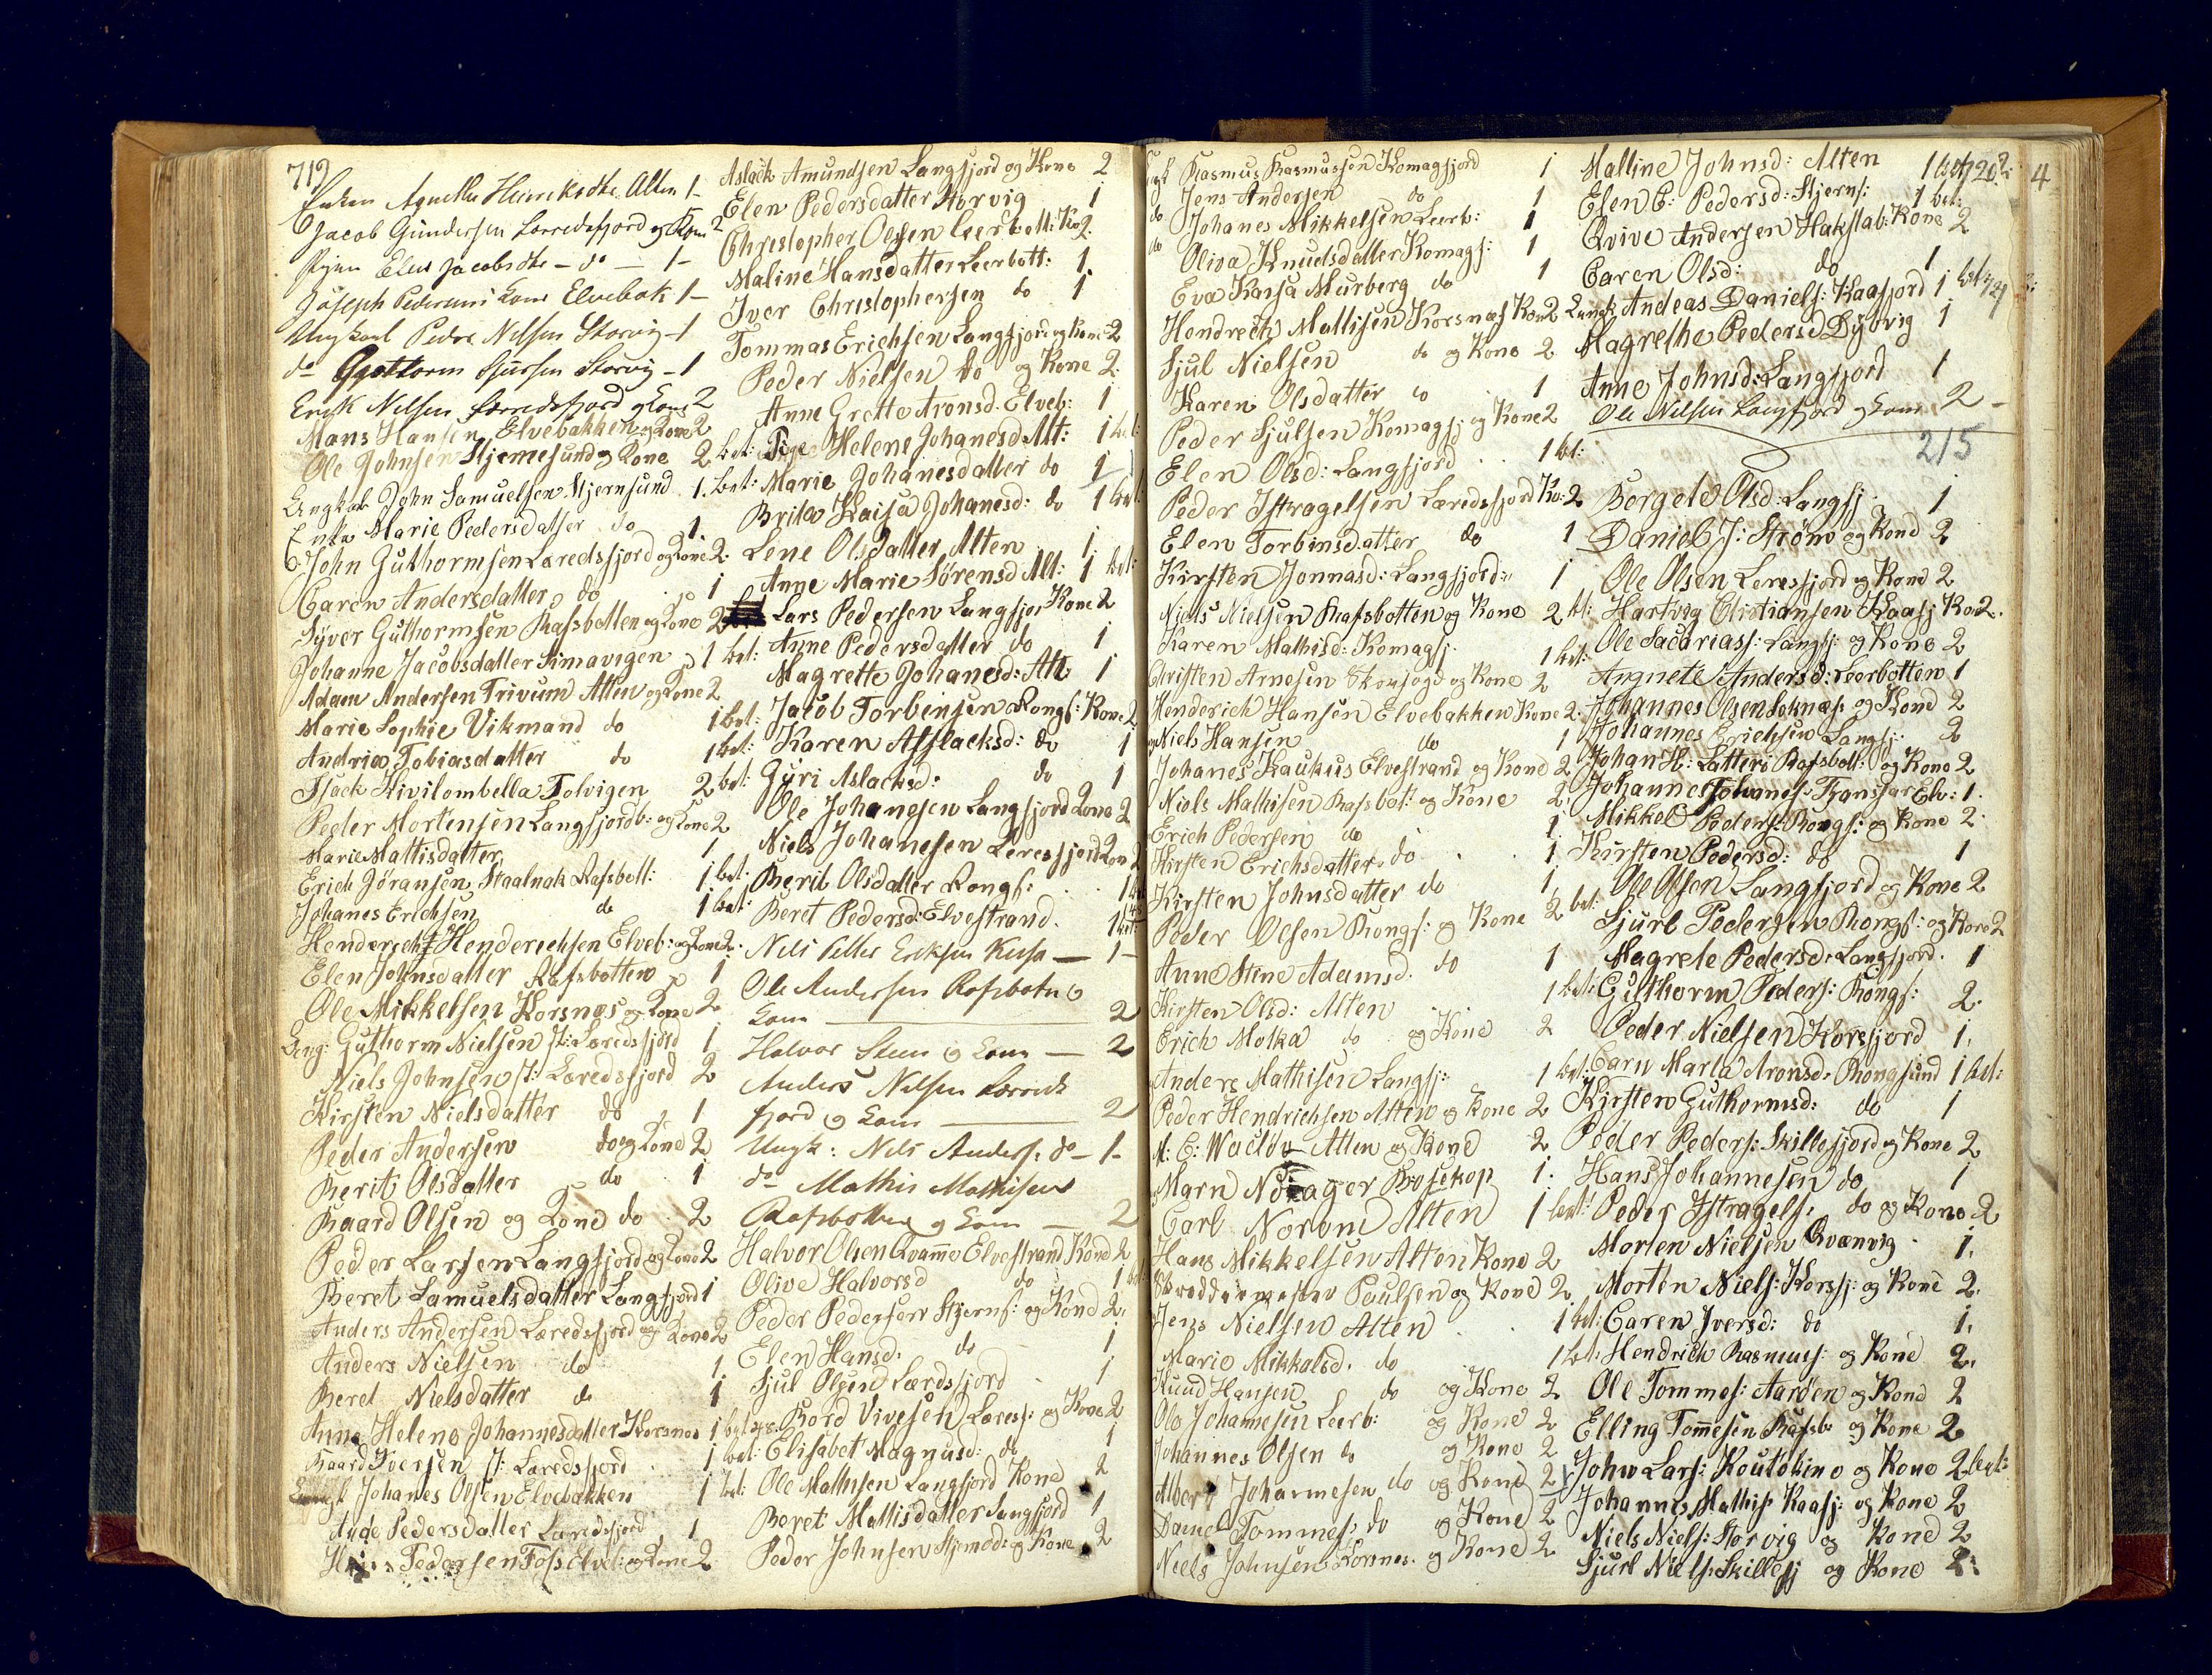 712
Enken Agnethe Henriksdtr. Alten 1 –
Jacob Gundersen Lerredsfjord og Kone 2
Pigen Elen Jacobsdtr – do – 1 –
Joseph Pedersens Kone Elvebak 1 –
Ungkarl Peder Nilsen Storvig – 1
do Guttorm Sjursen Storvig – 1
Erik Nilsen Lerredsfjord og Kone 2
Mons Hansen Elvebakken og Kone 2
Ole Johnsen Stjernesund og Kone 2 bet:
Ungkal John Samuelsen Stjernsund 1. bet:
Enke Marie Pedersdatter do 1.
John Guthormsen Læredsfjord og Kone 2.
Caren Andersdatter do 1
Syver Guthormsen Rafsbotten og Kone 2
Johanne Jacobsdatter Simavigen 1 bet:
Adam Andersen Trivund Alten og Kone 2
Marie Sophie Vikmand do 1 bet:
Andrie Tobiasdatter do 1 bet:
Isack Kivilombella Tolvigen 2 bet:
Peder Mortensen Langfjordb: og Kone 2
Marie Mattisdatter 1
Erich Jøransen Staalnak Rafsbott: 1 bet:
Johanes Erichsen do 1 bet:
Henderich Henderichsen Elveb: og Kone 2.
Elen Johnsdatter Rafsbotten 1
Ole Mikkelsen Korsnæs og Kone 2
Ung: Guthorm Nielsen st: Læredsfjord 1
Niels Johnsen st: Læredsfjord 2
Kirsten Nielsdatter do 1
Peder Andersen do og Kone 2
Berit Olsdatter do 1
Baard Olsen og Kone do 2
Peder Larsen Langfjord og Kone 2
Beret Samuelsdatter Langfjord 1
Anders Andersen Læredsfjord og Kone 2
Anders Nielsen do 1
Beret Nielsdatter do 1
Anne Helene Johannesdatter Korsnes 1 bet
Baard Iversen st: Læredsfjord 1 bet:
Johanes Olsen Elvebakken 1 bet:
Pedersdatter Læredsfjord 1
Pedersen Foss Elveb: og Kone 2
Aslack Amundsen Langfjord og Kone 2
Elen Pedersdatter Storvig 1
Christopher Olsen Leerbott: Ko 2.
Maline Hansdatter Leerbott: 1.
Iver Christophersen do 1
Tommas Erichsen Langfjord og Kone 2
Peder Nielsen do og Kone 2
Anne Grette Aronsd. Elveb: 1
Pige Helene Johanesd. Alt: 1 bet:
Marie Johanesdatter do 1
Brita Kaisa Johanesd: do 1 bet:
Lene Olsdatter Alten 1
Anne Marie Sørensd. Alt: 1 bet:
Lars Pedersen Langfjor Kone 2
Anne Pedersdatter do 1
Magrette Johanesd: Alt 1
Jacob Torbensen Rongs: Kone 2
Karen Asslacksd: do 1
Guri Aslacksd: do 1
Ole Johanesen Langfjord Kone 2
Niels Johanesen Leresfjord Kon 2
Berit Olsdatter Rongs: 1 bet
Beret Pedersd: Elvestrand. 1 bet:
Nils Peter Eriksen – 1 –
Ole Andersen Rafsbotn og
Kone – 2
Halvor Steen og Kone – 2
Anders Nilsen Lerreds
fjord og Kone – 2
Ungk: Nils Anders. do – 1 –
do Mathis Mathisen
Rafsbotten og Kone – 2
Halvor Olsen Qvamme Elvestrand Kone 2
Olive Halvorsd do 1 bet:
Peder Pedersen Stjerns: og Kone 2.
Elen Hansd. do 1
Sjul Olsen Lærdsfjord 1
Bord Vivesen Læress: og Kone 2
Elisabet Magnusd: do 1
Ole Mathisen Langfjord Kone 2
Beret Mattisdatter Langfjord 1
Peder Johnsen og Kone 2
Rasmus Rasmussen Komagfjord 1
do Jens Andersen do 1
do Johanes Mikkelsen Leerb: 1
do Oliva Knudsdatter Komagf: 1
Eva Kaisa Murberg do 1
Hendrech Mattisen Korsnæs Kon 2
Sjul Nielsen do og Kone 2
Karen Olsdatter do 1
Peder Sjulsen Komagfj og Kone 2
Elen Olsd: Langfjord 1 bet:
Peder Istragelsen Læredsfjord Ko: 2
Elen Torbinsdatter do 1
Kirsten Jonnasd: Langfjord 1
Niels Nielsen Rafsbotten og Kone 2 bt:
Karen Mathisd: Komagf. 1 bet:
Christen Arnesen og Kone 2
Henderich Hansen Elvebakken Kone 2.
Niels Hansen do 1
Johanes Kaukus Elvestrand og Kone 2
Niels Mathisen Rafsbot: og Kone 2.
Erich Pedersen do 1
Kirsten Erichsdatter do 1
Kirsten Johnsdatter do 1
Peder Olsen Rongs: og Kone 2 bet:
Anne Stine Adamsd. do 1
Kirsten Olsd: Alten 1 bet:
Erich Motka do og Kone 2
Anders Mathisen Langfj: 1 bet:
Peder Hendrichsen Alten og Kone 2
M: C: Waclow Alten og Kone 2
Marn Norager Bosekop 1.
Carl Norvne Alten 1 bet:
Hans Mikkelsen Alten Kone 2
Skreddermester Paulsen og Kone 2
Jens Nielsen Alten 1 bet:
Marie Mikkelsd. do 1 bet:
Knud Hansen do og Kone 2
Ole Johannesen Leerb: og Kone 2
Johannes Olsen do og Kone 2
Albert Johannesen do og Kone 2
Daniel Tommes: do og Kone 2
Niels Johnsen Korsnes. og Kone 2
Malline Johnsd: Alten 1 bet
Elen C: Pedersd: Stjerns: 1 bet:
Qvive Andersen Hakstab: Kone 2
Caren Olsd: do 1
Ungk Andeas Daniels: Kaafjord 1 bet
Magrethe Pedersd Dybvig 1
Anne Johnsd: Langfjord 1
Ole Nilsen Langfjord og Kone 2 –
215
Bergete Olsd: Langfj 1
Daniel J: Strøm og Kone 2
Ole Olsen Leresfjord og Kone 2
Hartvig Christiansen Kaafj Kon 2.
Ole Sacariass: Langfj: og Kone 2
Angnete Andersd: Leerbotten 1
Johannes Olsen og Kone 2
Johannes Erichsen Langfj: 2
Johan H: Latteri Rafsbott: og Kone 2
Johannes Johanes: Transfar Elv: 1.
Mikkel Peders: Rongs: og Kone 2.
Kirsten Pedersd: do 1
Ole Olsen Langfjord og Kone 2
Sjurl Pedersen Rongs: og Kone 2
Magrete Pedersd: Langfjord. 1
Guthorm Peders: Rongs: 2.
Peder Nielsen Korsfjord 1.
Carn Marta Aronsd: Rongsund 1 bet:
Kirsten Guthormsd: do 1
Peder Peders: Skillefjord og Kone 2
Hans Johannesen do 1
Peder Istragels: do og Kone 2
Morten Nielsen Qvænvig 1.
Morten Niels: Korsfj: og Kone 2.
Caren Iversd: do 1.
Hendrick Rasmuss: og Kone 2.
Ole Tommes: Aarøen og Kone 2
Elling Tommesen Rafsb: og Kone 2
John Lars: Koutokino og Kone 2 bet:
Johannes Mathis Kaafj: og Kone 2
Niels Niels: Storvig og Kone 2
Sjurl Niels: Skillefj og Kone 2.
4